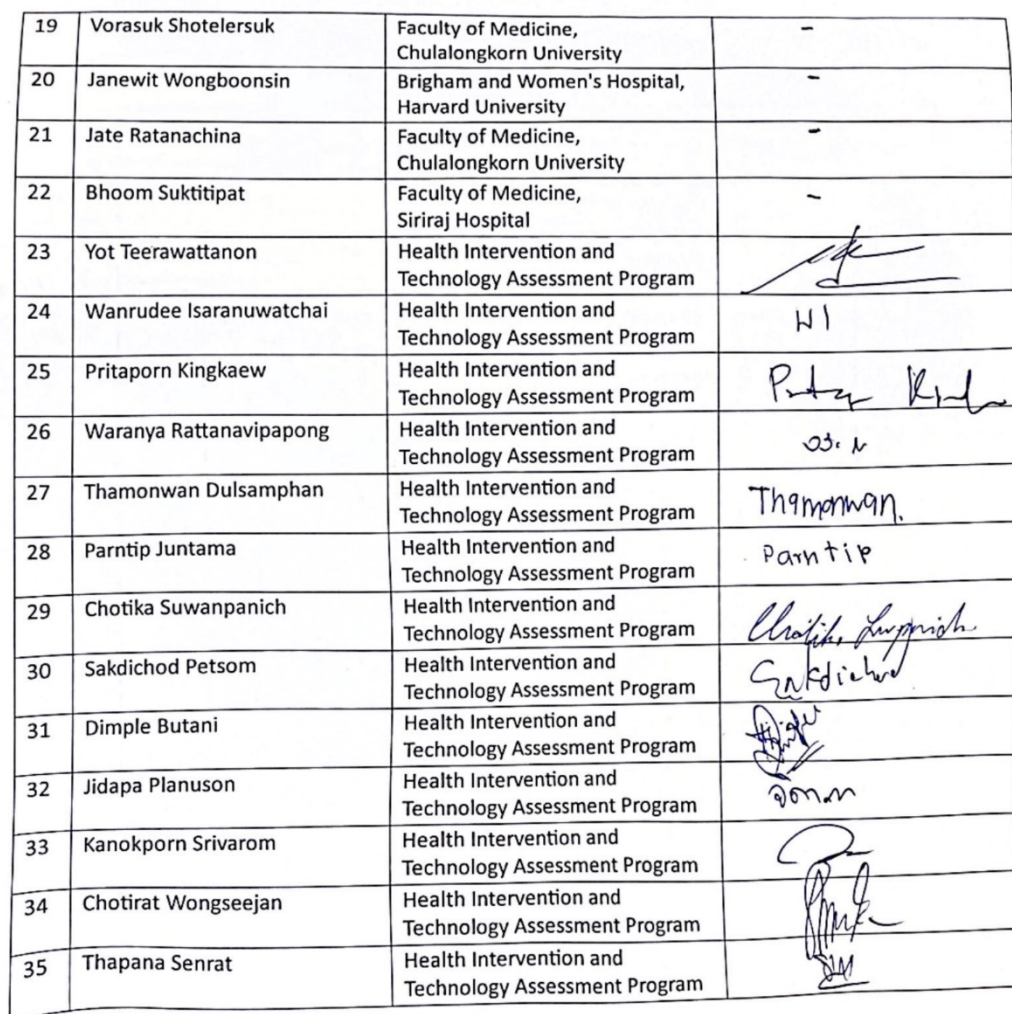 19 Vorasuk Shotelersuk Faculty of Medicine, -
Chulalongkorn University
20 Janewit Wongboonsin Brigham and Women's Hospital, -
Harvard University
21 Jate Ratanachina Faculty of Medicine, -
Chulalongkorn University
22 Bhoom Suktitipat Faculty of Medicine, -
Siriraj Hospital
23 Yot Teerawattanon Health Intervention and
Technology Assessment Program
24 Wanrudee Isaranuwatchai Health Intervention and WI
Technology Assessment Program
25 Pritaporn Kingkaew Health Intervention and
Technology Assessment Program
26 Waranya Rattanavipapong Health Intervention and
Technology Assessment Program
27 Thamonwan Dulsamphan Health Intervention and Thamonwan.
Technology Assessment Program
28 Parntip Juntama Health Intervention and Parntip
Technology Assessment Program
29 Chotika Suwanpanich Health Intervention and
Technology Assessment Program
30 Sakdichod Petsom Health Intervention and Sakdichod
Technology Assessment Program
31 Dimple Butani Health Intervention and
Technology Assessment Program
32 Jidapa Planuson Health Intervention and
Technology Assessment Program
33 Kanokporn Srivarom Health Intervention and
Technology Assessment Program
34 Chotirat Wongseejan Health Intervention and
Technology Assessment Program
35 Thapana Senrat Health Intervention and
Technology Assessment Program